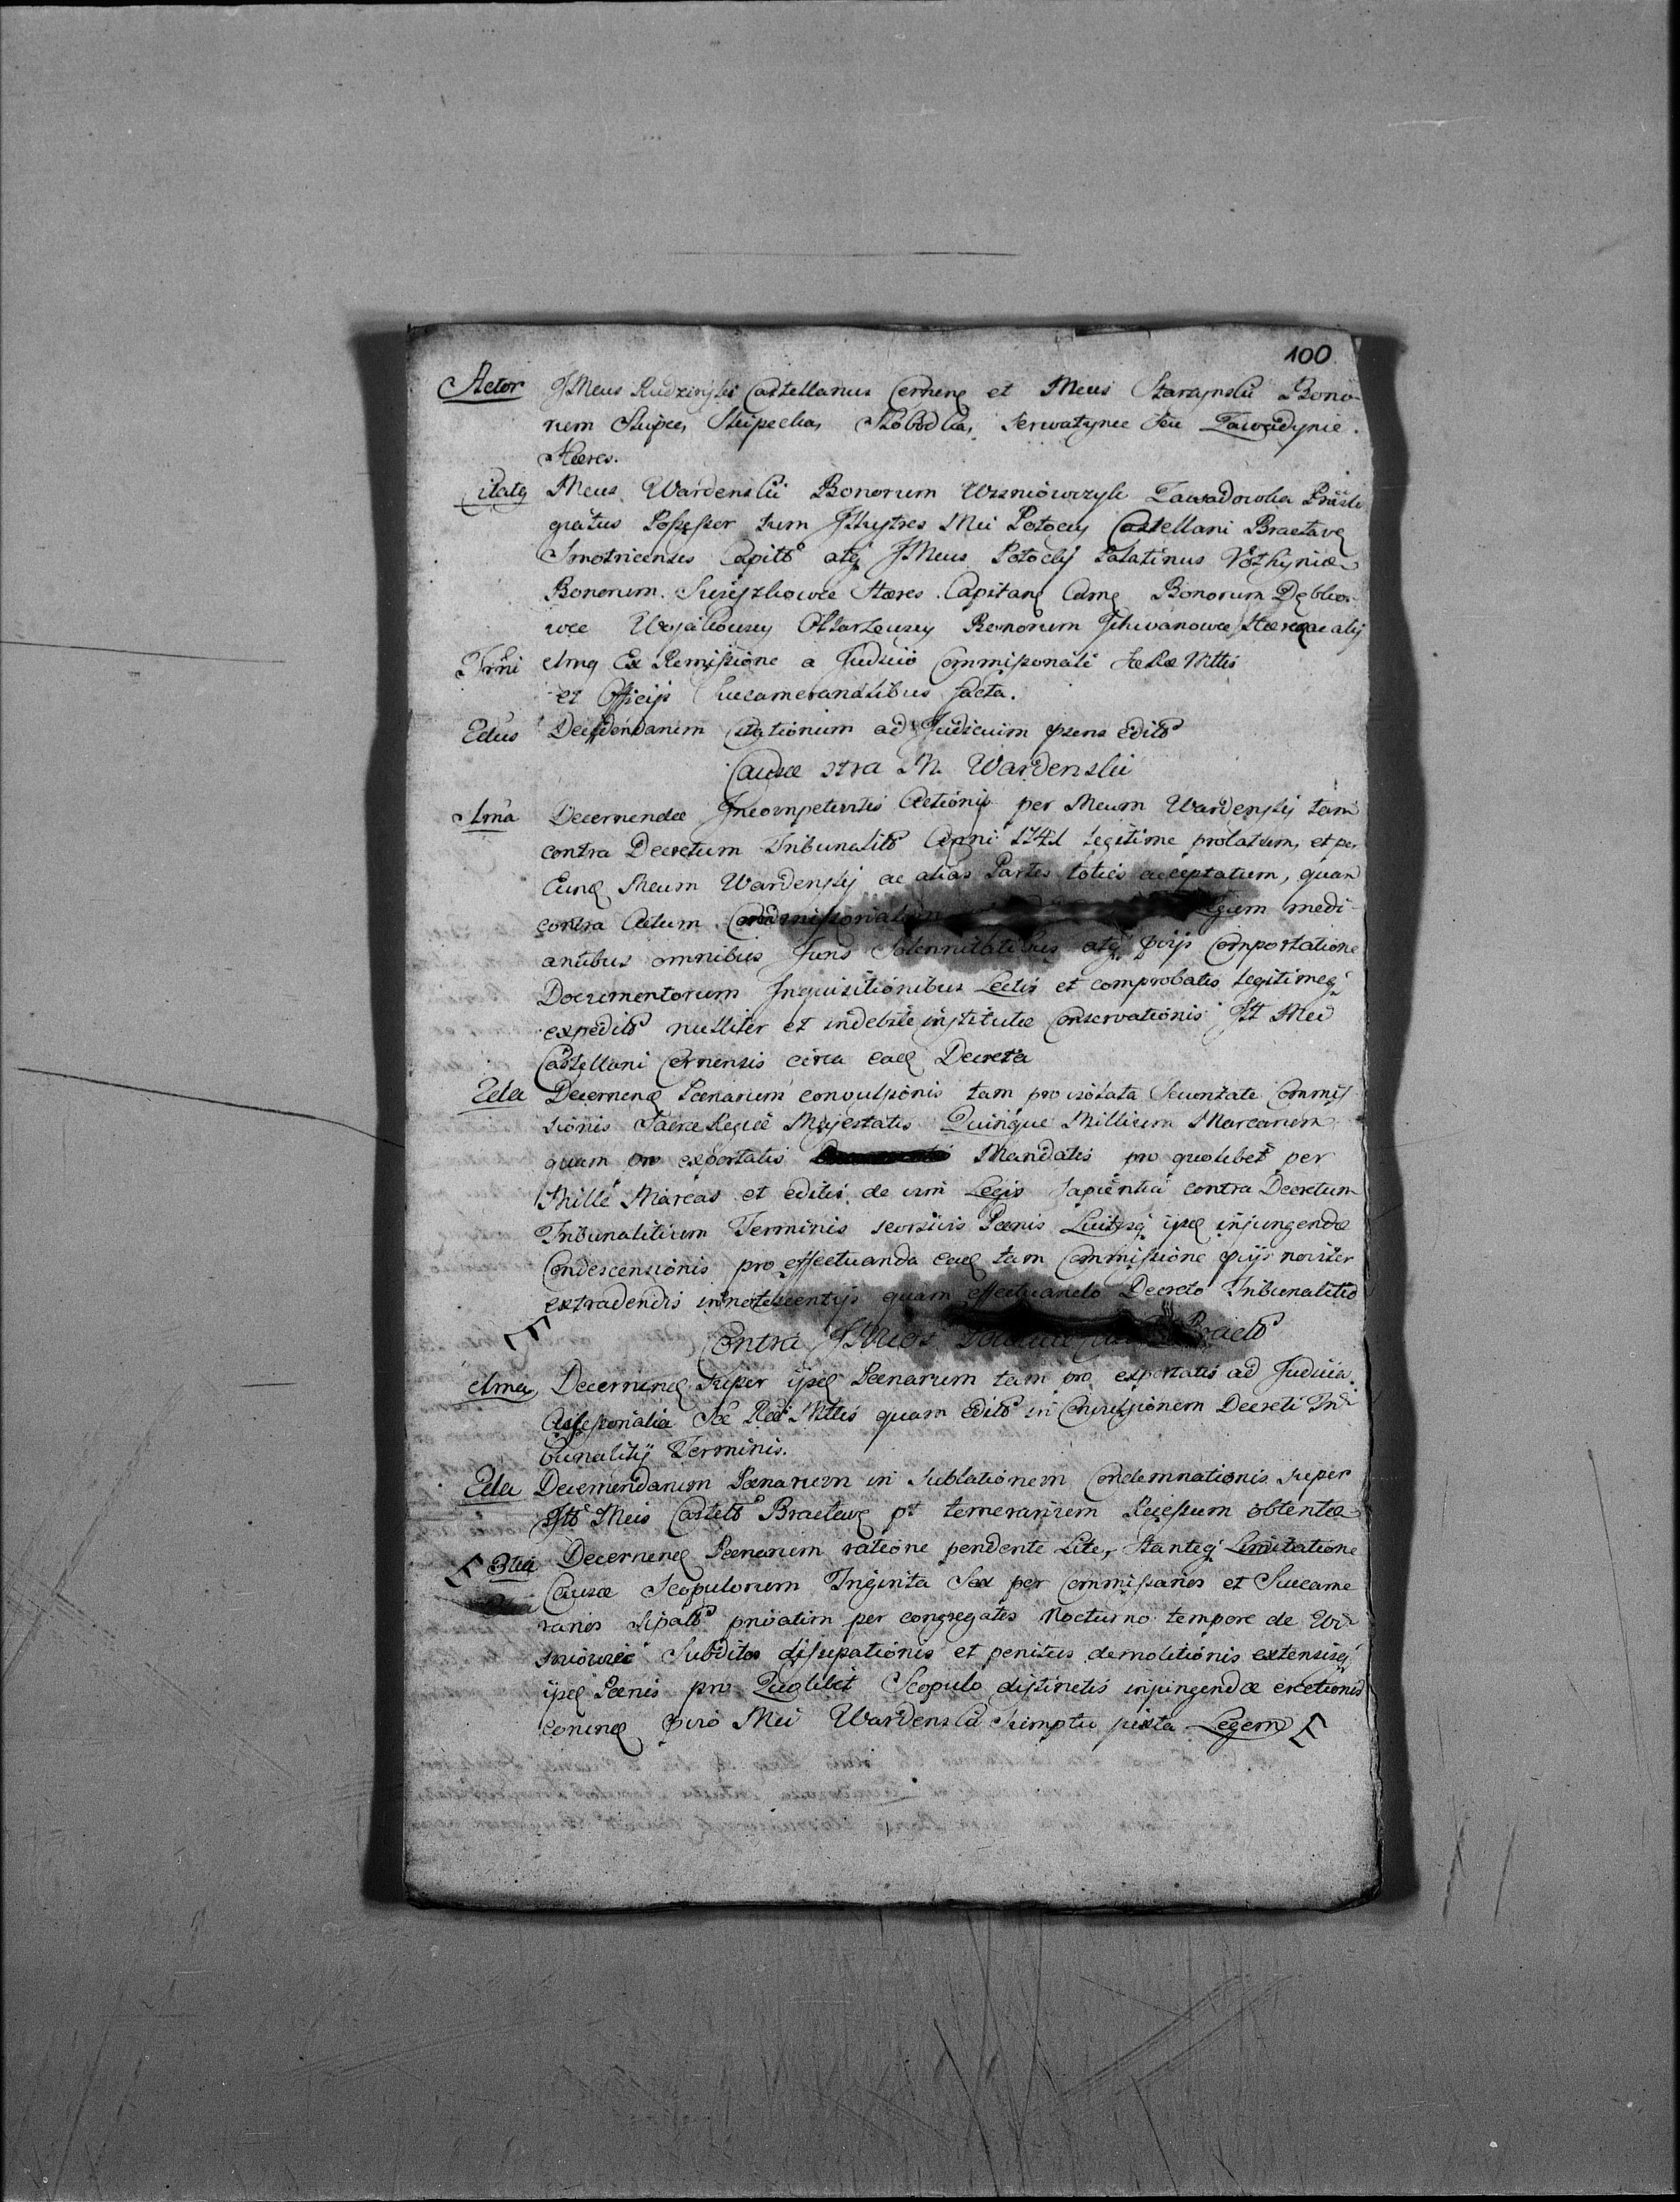 100.
Actor JMeus Rudzinski Castellanus Cernene et Meus Starzynski Bono-
rum Skipce, Skipecka, Sloboda, Serwatynce seu Zawadynie.
Hæres.
Citatq Meus Wardenski Bonorum Wisniowczyk Zawadowka
gnatus Possessor tum Illustres Mei Potocki Castellani Braclave
Smotricensis Capitt atq JMeus Potocky Palatinus Volhyniæ
Bonorum Hæres Capitane Bonorum
wce Bonorum Hæres ac alij
Trmi Ex Remissione a Judicio Commissoriali Mttis
et Officijs Succamerarialibus facta.
Decidendarum Citationum ad Judicium psens edits
Causæ ctra M. Wardenski
1ma Decernendæ Incompetentis Actionis per Meum Wardensky tam
contra Decretum Tribunalits Anni 1741 legitime prolatum, et per
Eund Meum Wardensky ac alias Partes toties acceptatum, quam
contra Actum Commissorialem Legum medi-
antibus omnibus Juris Solennitatibus atq pvijs Comportatione
Documentorum Inquisitionibus Lectis et comprobatis legitimeq
expedits nulliter et indebite institutæ Conservationis Ill Mei
Castellani Cernensis circa ead Decreta
2da Decernend Pœnarum convulsionis tam pro violata Securitate Commis
sionis Sacræ Regiæ Majestatis Quinque Millium Marcarum
quam pro exportatis Mandatis pro quolibet per
Mille Marcas et editis de vim Legis sapientia contra Decretum
Tribunalitium Terminis seorsivis Pœnis Luitisq ipse injungendæ
Condescensionis pro effectuanda ead tam Commissione pvijs noviter
extradendis innotescentijs quam effectuando Decreto Tribunalitio
Contra JMeos
1ma Decernend super ipse Pœnarum tam pro exportatis ad Judicia
Assessorialia Sæ Ræ Mttis quam edits in Convulsionem Decreti Tri
bunalitij Terminis.
2da Decernendarum Pœnarum in sublationem Condemnationis super
Meis Castells Braclave pt temerarium Recessum obtentæ
3tia Decernend Pœnarum ratione pendente Lite, stanteq Limitatione
Causæ Scopulorum Triginta Sex per Commissarios et Succame
rarios sipats privatim per congregatos Nocturno tempore de Wi
sniowiec Subditos dissipationis et penitus demolitionis extensisq
ipse Pœnis pro Quolibet Scopulo distinctis injungendæ erectionis
eorund pvio Mei Wardenski sumptu juxta Legem